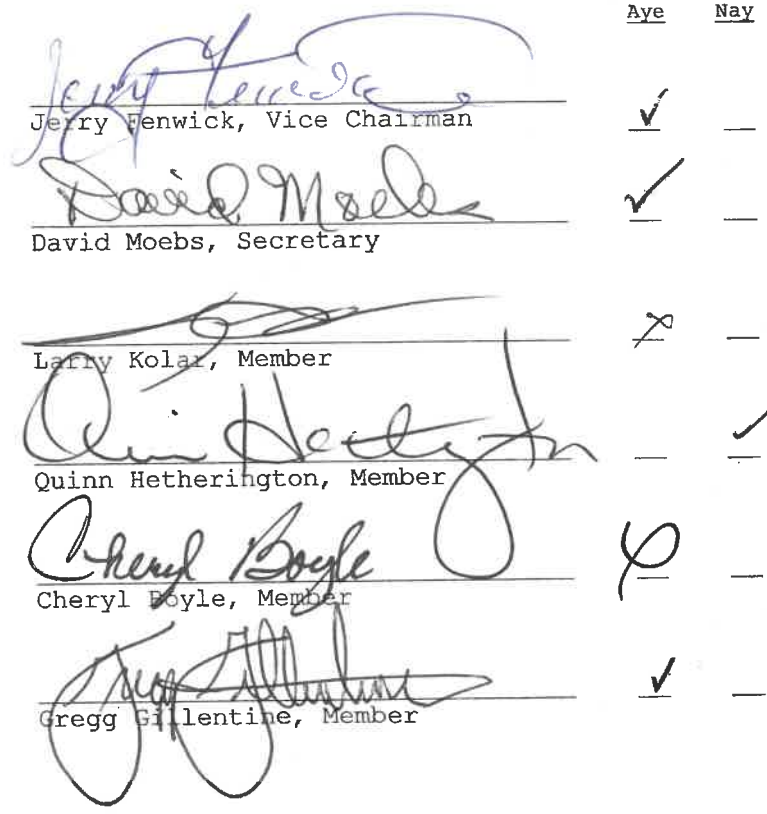 Aye Nay
Jerry Fenwick
Jerry Fenwick, Vice Chairman ✓
David Moebs ✓
David Moebs, Secretary
Larry Kolar, Member
Quinn Hetherington ✓
Quinn Hetherington, Member
Cheryl Boyle
Cheryl Boyle, Member
Gregg Gillentine ✓
Gregg Gillentine, Member